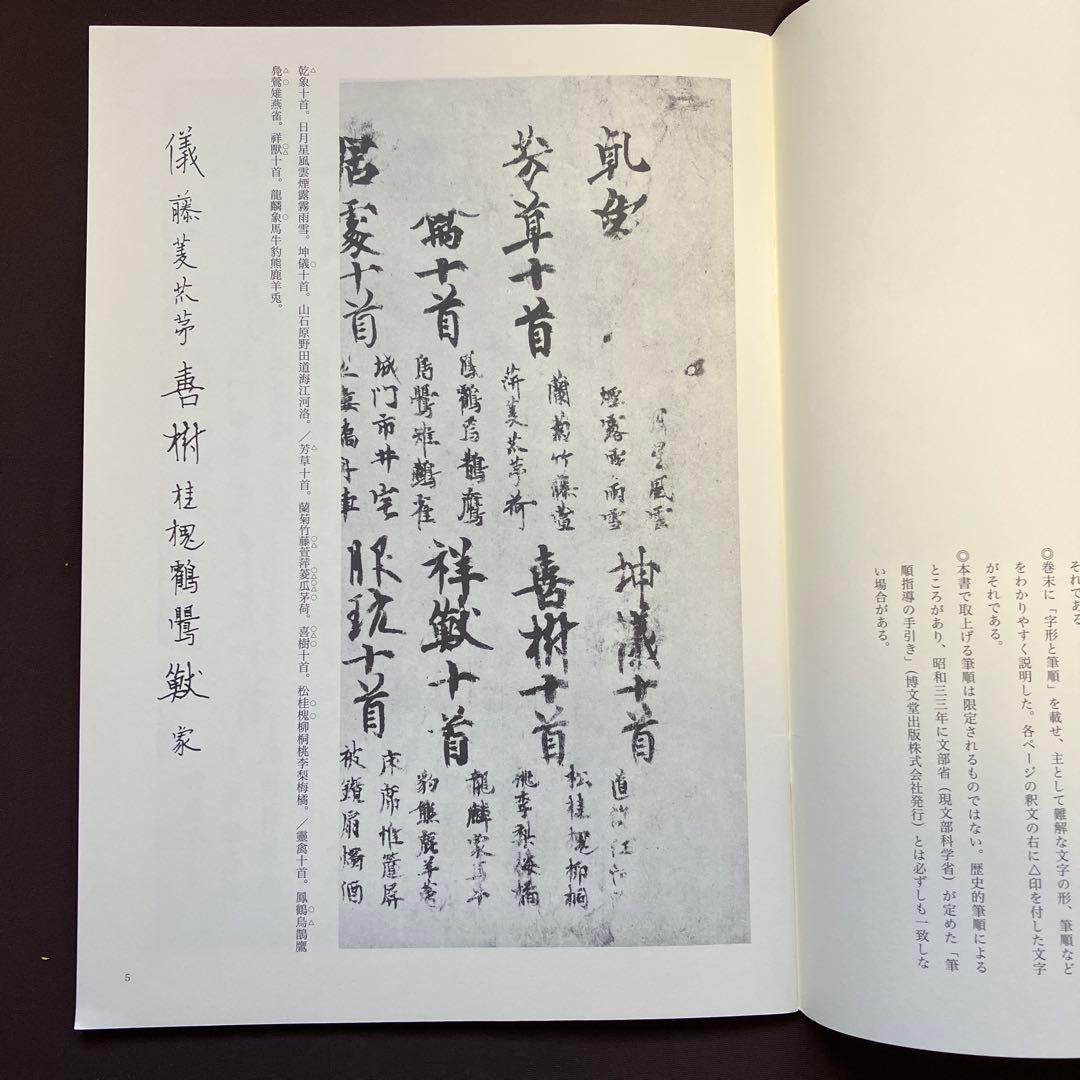 それである
◎巻末に「字形と筆順」を載せ、主として難解な文字の形、筆順など
をわかりやすく説明した。各ページの釈文の右に△印を付した文字
がそれである。
◎本書で取上げる筆順は限定されるものではない。歴史的筆順による
ところがあり、昭和三三年に文部省（現文部科学省）が定めた「筆
順指導の手引き」（博文堂出版株式会社発行）とは必ずしも一致しな
い場合がある。
乾象
月星風雲
煙露霧雨雪
坤儀十首
道海江河
芳草十首
蘭菊竹藤萱
萍菱苽茅荷
喜樹十首
松桂槐柳桐
桃李梨梅橘
禽十首
鳳鶴烏鵲鷹
鳧鶯雉鷰雀
祥獣十首
龍麟象馬牛
豹熊鹿羊菟
居處十首
城門市井宅
服玩十首
床席帷簾屏
被鏡扇燭酒
乾象十首。日月星風雲煙露霧雨雪。坤儀十首。山石原野田道海江河洛。／芳草十首。蘭菊竹藤萱萍菱瓜茅荷。喜樹十首。松桂槐柳桐桃李梨梅橘。／靈禽十首。鳳鶴烏鵲鷹
鳧鶯雉燕雀。祥獸十首。龍麟象馬牛豹熊鹿羊兎。
儀藤菱苽茅喜樹桂槐鶴鶯獣象
5